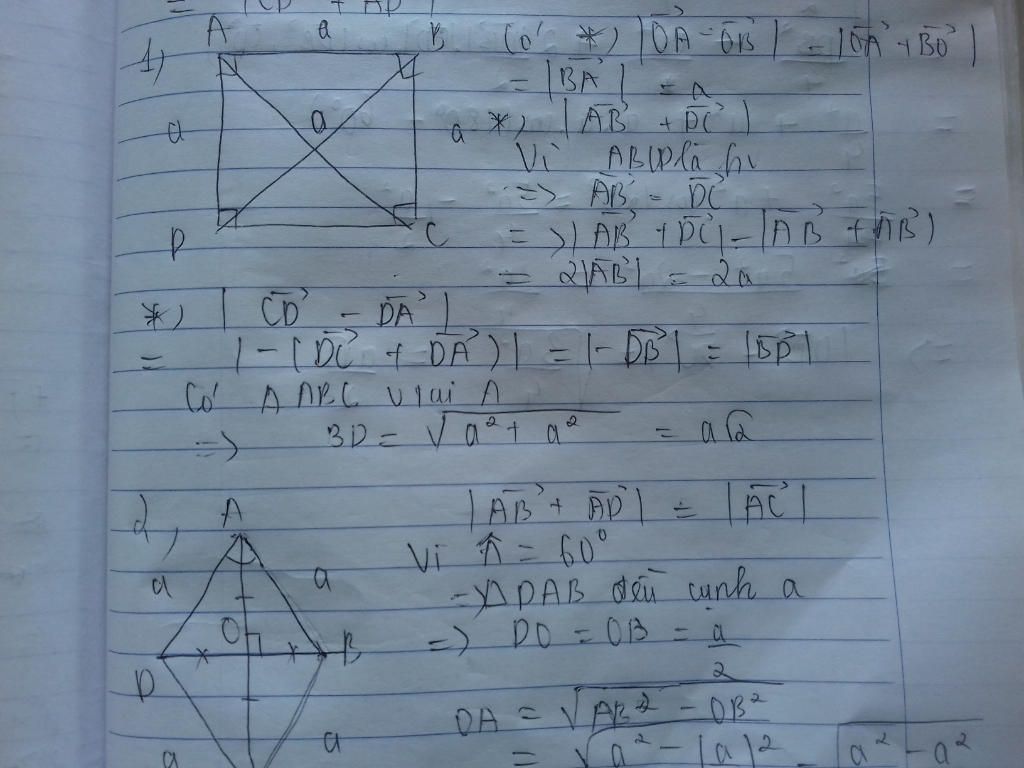 = |CD⃗ + AD⃗|
1)
A a B
a a a
D C
Có *) |OA⃗ - OB⃗| = |OA⃗ + BO⃗|
= |BA⃗| = a
*) |AB⃗ + DC⃗|
Vì ABCD là hv
=> AB⃗ = DC⃗
=> |AB⃗ + DC⃗| = |AB⃗ + AB⃗|
= 2|AB⃗| = 2a
*) |CD⃗ - DA⃗|
= |-(DC⃗ + DA⃗)| = |-DB⃗| = |BD⃗|
Có Δ ABC v tại A
=> BD = √(a² + a²) = a√2
2,
A
a a
O
D B
a a
|AB⃗ + AD⃗| = |AC⃗|
Vì Â = 60°
=> Δ DAB đều cạnh a
=> DO = OB = a/2
OA = √(AB² - OB²)
= √(a² - (a)² = √(a² - a²